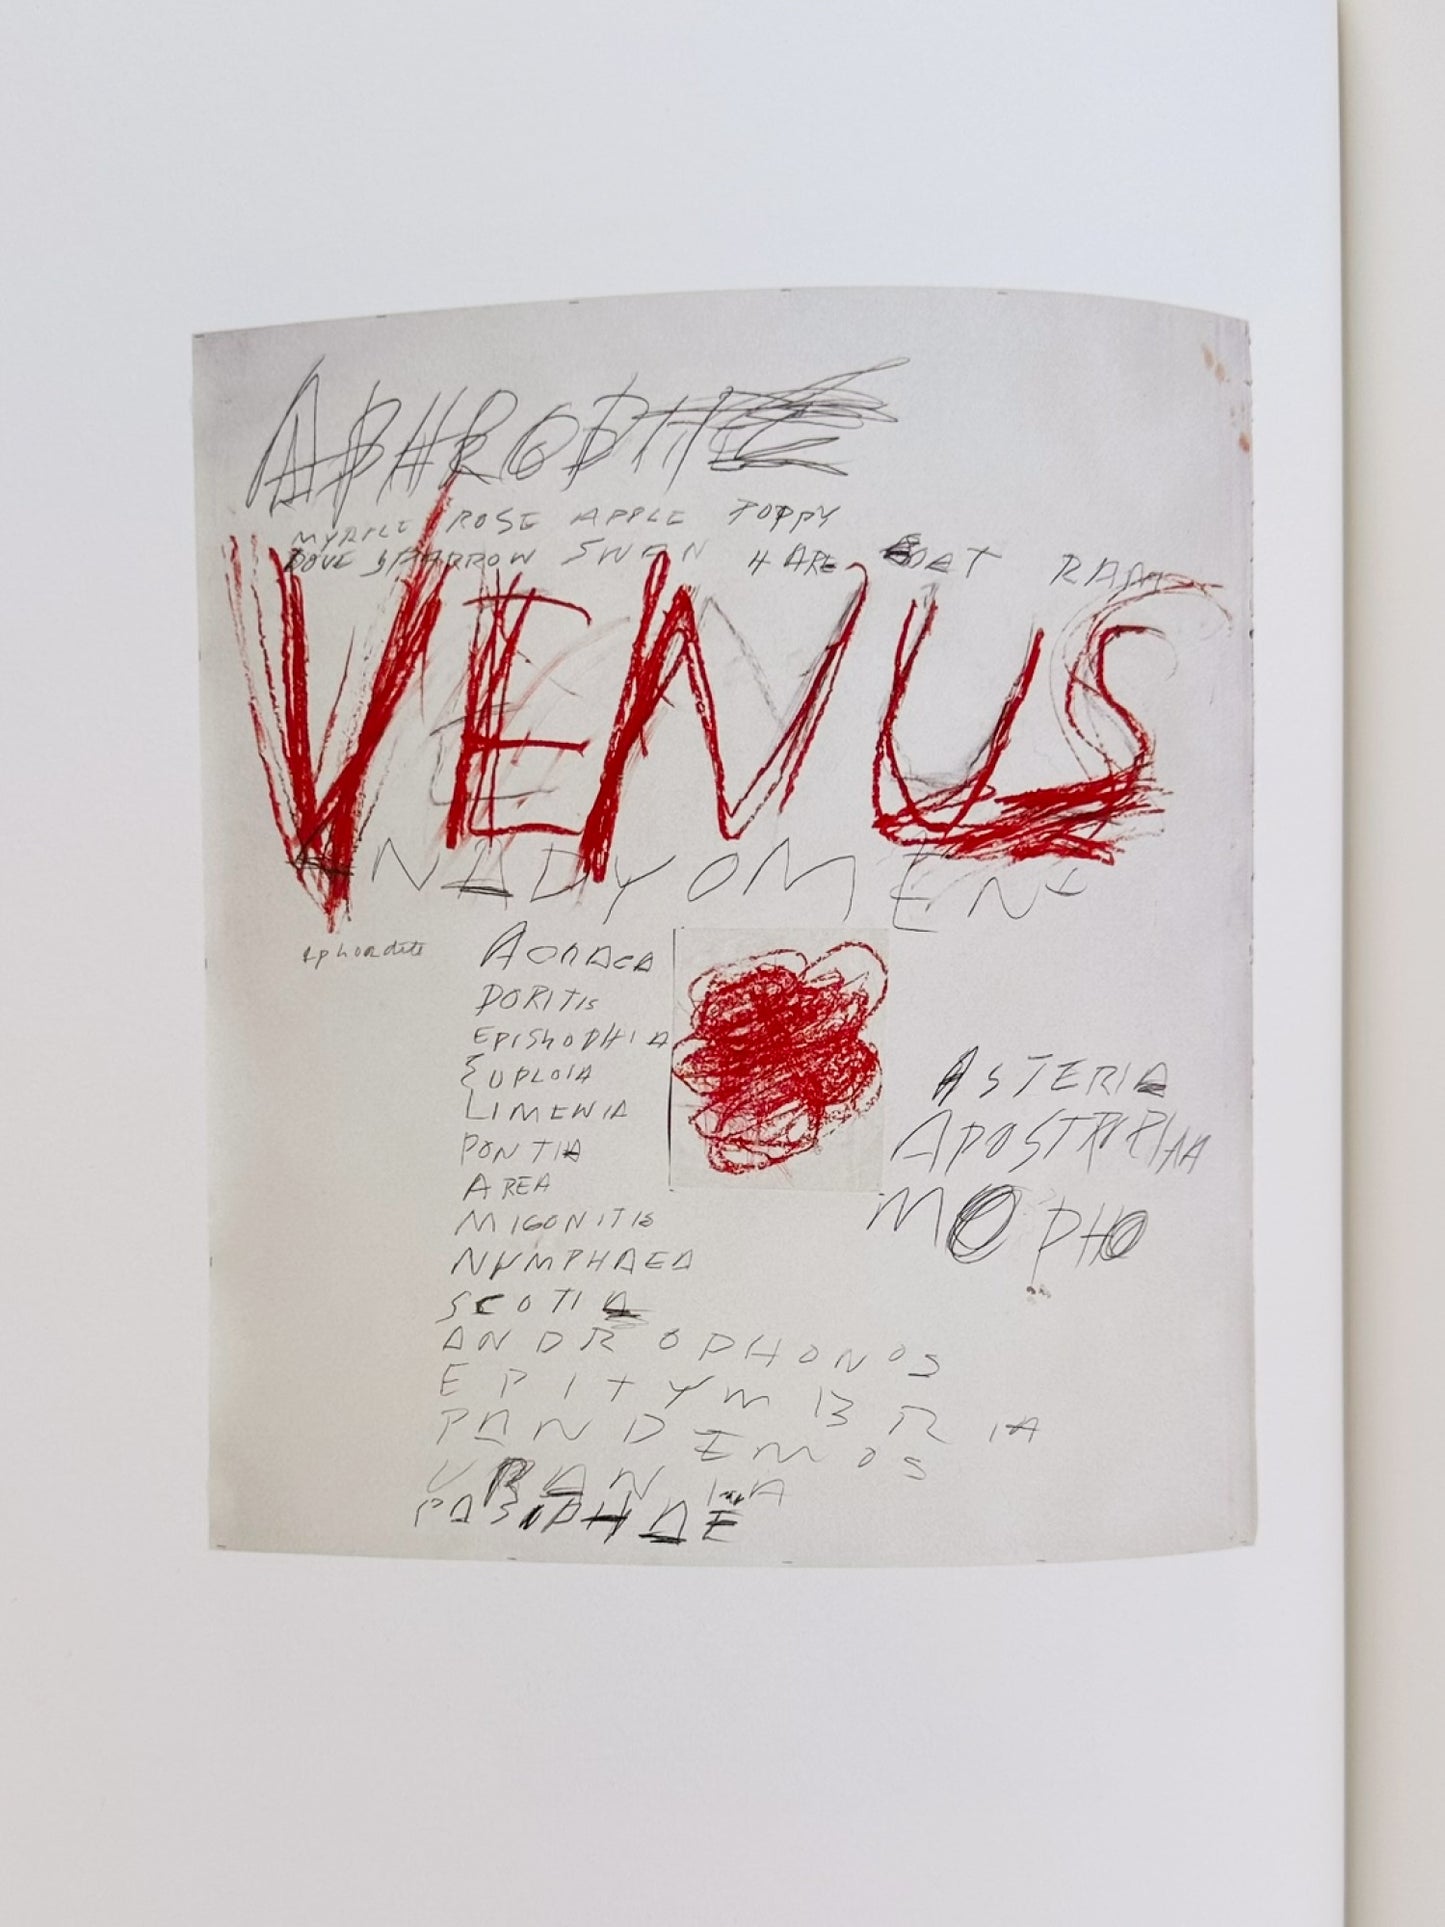 APHRODITE
MYRTLE ROSE APPLE POPPY
DOVE SPARROW SWAN HARE RAM
VENUS
ANADYOMENE
Aphordite
DORITIS
EUPLOIA
LIMENIA
PONTIA
AREA
MIGONITIS
NYMPHAEA
SCOTIA
ANDROPHONOS
EPITYMBRIA
PANDEMOS
URANIA
PASIPHAE
ASTERIA
MOPHO